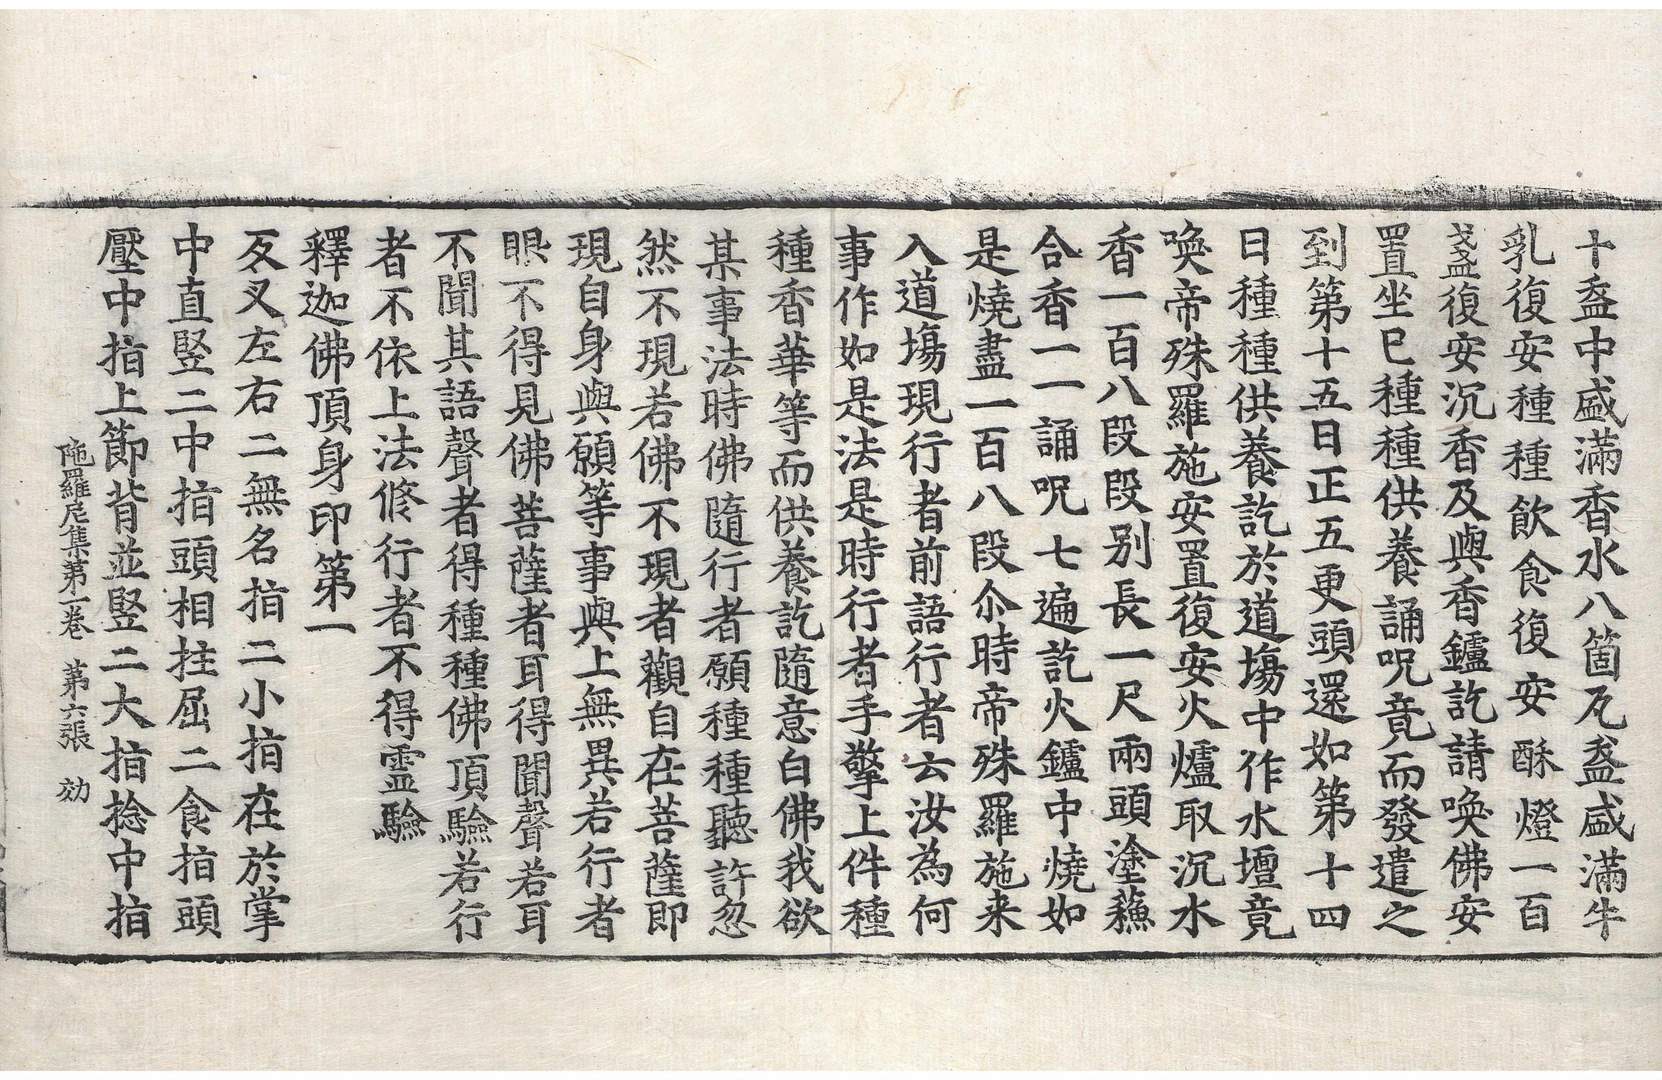 十盌中盛滿香水八箇瓦盌盛滿牛
乳復安種種飲食復安酥燈一百
盞復安沉香及與香鑪訖請喚佛安
置坐已種種供養誦呪竟而發遣之
到第十五日正五更頭還如第十四
日種種供養訖於道場中作水壇竟
喚帝殊羅施安置復安火爐取沉水
香一百八段段別長一尺兩頭塗蘓
合香一一誦呪七遍訖火鑪中燒如
是燒盡一百八段尒時帝殊羅施来
入道場現行者前語行者云汝為何
事作如是法是時行者手擎上件種
種香華等而供養訖隨意白佛我欲
某事法時佛隨行者願種種聽許忽
然不現若佛不現者觀自在菩薩即
現自身與願等事與上無異若行者
眼不得見佛菩薩者耳得聞聲若耳
不聞其語聲者得種種佛頂驗若行
者不依上法修行者不得靈驗
釋迦佛頂身印第一
反叉左右二無名指二小指在於掌
中直竪二中指頭相拄屈二食指頭
壓中指上節背並竪二大指捻中指
陁羅尼集第一卷　第六張　効